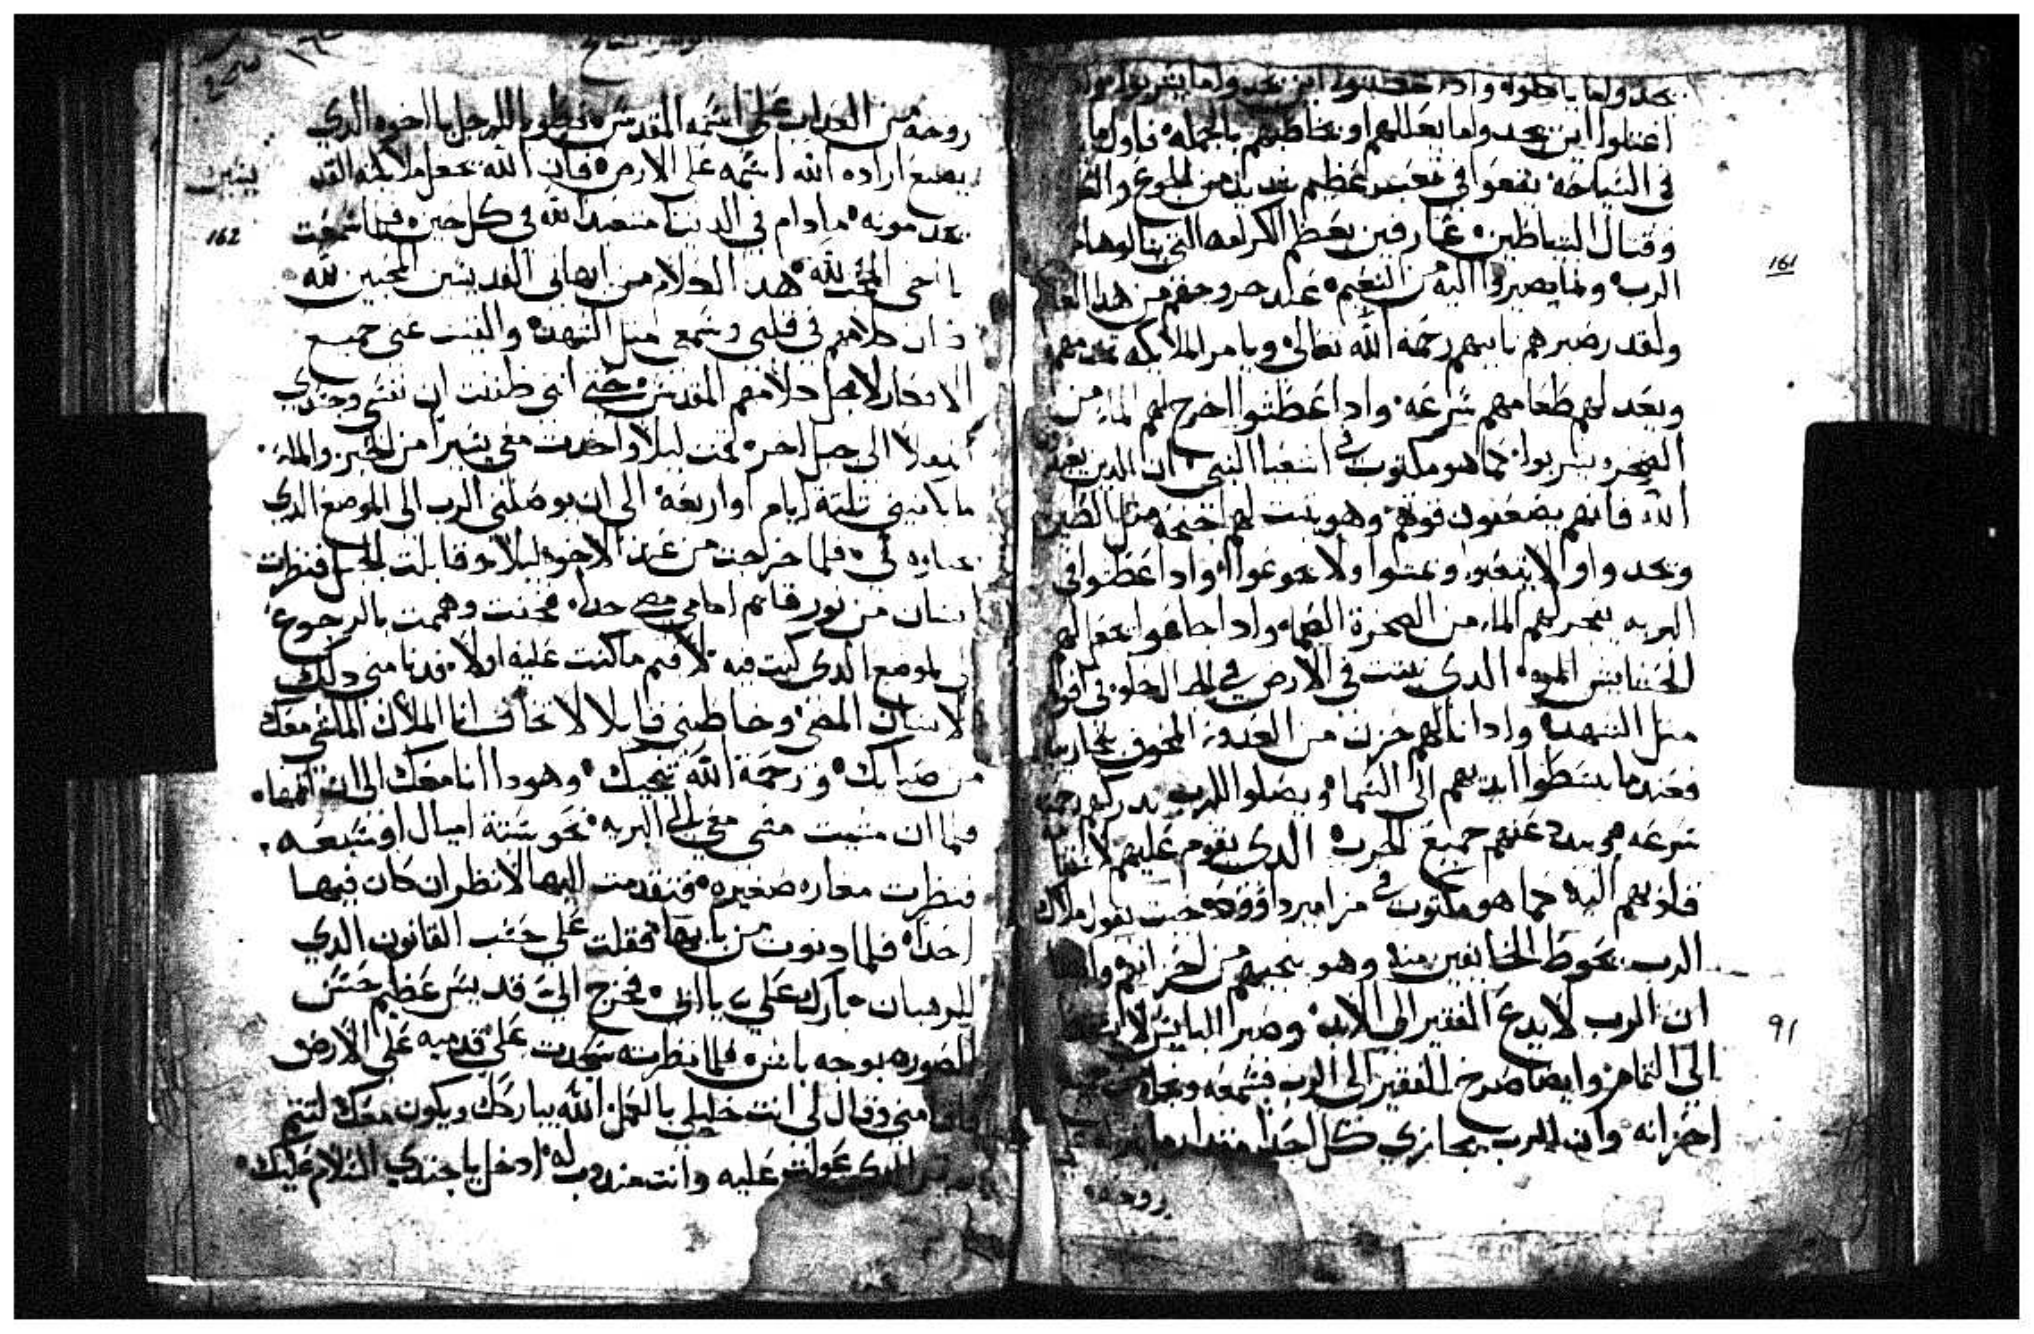 يجدوا ما ياكلوه واذا عطشوا اين يجدوا ما يشربوا واذا
اعتلوا اين يجدوا ما يعللهم او يخاطبهم بالجمله فاول ما
في السياحه يقعوا في تعب عظيم شديد من الجوع والعطش
وقتال الشياطين عارفين بعظم الكرامه التي ينالوها من
الرب وما يصيروا اليه من النعيم عند خروجهم من هدا العالم
ولقد رصبرهم ياتيهم رحمة الله تعالى ويامر الملايكه تخدمهم
ويعد لهم طعامهم بسرعه واذا عطشوا اخرج لهم الماء من
الصخر ويشربوا كما هو مكتوب في اشعيا النبي ان الدين يعبدوا
الله فانهم يضعفون قوتهم وهو ينبت لهم اجنحه مثل الطير
ويجدوا ولا يتعبوا ويمشوا ولا يجوعوا واذا عطشوا في
البريه يفجر لهم الماء من الصخرة الصما واذا جاعوا يجعل لهم
الحشايش المره الدي تنبت في الارض في الحال حلوه في افواههم
مثل الشهد واذا نالهم حزن من العدو المخوف يحاربهم
فعند ما يبسطوا ايديهم الى السما ويصلوا للرب يدركهم رحمته
سرعه هو يبدد عنهم جميع الحرب الدي يقوم عليهم لاجل
قلوبهم اليه كما هو مكتوب في مزامير داوود حيث يقول ملاك
الرب يحوط الخايفين منه وهو ينجيهم من احزانهم وايضا
ان الرب لا يدع الفقير الى الابد وصبر البايس لا
الى التمام وايضا صرخ الفقير الى الرب فسمعه ونجاه من جميع
احزانه وان الرب يجازي كل احد
روحه
161
91
روحه من العداب على اسمه المقدس فطوبا للرجل يا اخوه الدي
يصنع اراده الله اسمه على الارض فان الله يجعل ملايكته القديسين
بعد موته ما دام في الدنيا متعبد الله في كل حين فلما سمعت
يا اخي المحب لله هدا الكلام من اباهاتي القديسين المحبين لله
كان كلامهم في قلبي وسمعي مثل الشهد والقيت عني جميع
الافكار لاجل كلامهم المقدس حتى انني ظننت ان نفسي وجسدي
نقلا الى جبل اخر قمت ليلا واخدت معي يسيرا من الخبز والماء
ما يكفيني تلته ايام او اربعه الى ان يوصلني الرب الى الموضع الدي
يختاره لي فلما خرجت من عند الاخوه ليلا وقابلت الجبل فنظرت
انسان من نور قايم امامي مضي جدا فجنت وهممت بالرجوع
الى الموضع الدي كنت فيه لاقيم ما كنت عليه اولا فدنا مني دلك
الانسان المضي وخاطبني قايلا لا تخاف انا الملاك الماشي معك
من صباك ورحمة الله تنجيك وهودا انا معك الى ان تتمها
فلما ان مشيت مشى معي الى البريه نحو ستة اميال او سبعه
فنظرت مغاره صغيره فتقدمت اليها لانظر ان كان فيها
احدا فلما دنوت من بابها فقلت على حسب القانون الدي
للرهبان بارك علي يا ابي فخرج الي قديس عظيم حسن
الصوره بوجه باش فلما نظرته سجدت على قدميه على الارض
فاقامني وقال لي انت خليلي بالعمل الله يباركك ويكون معك لتتم
الدي عولت عليه وانت مندوب له ادخل يا جندي السلام عليك
162